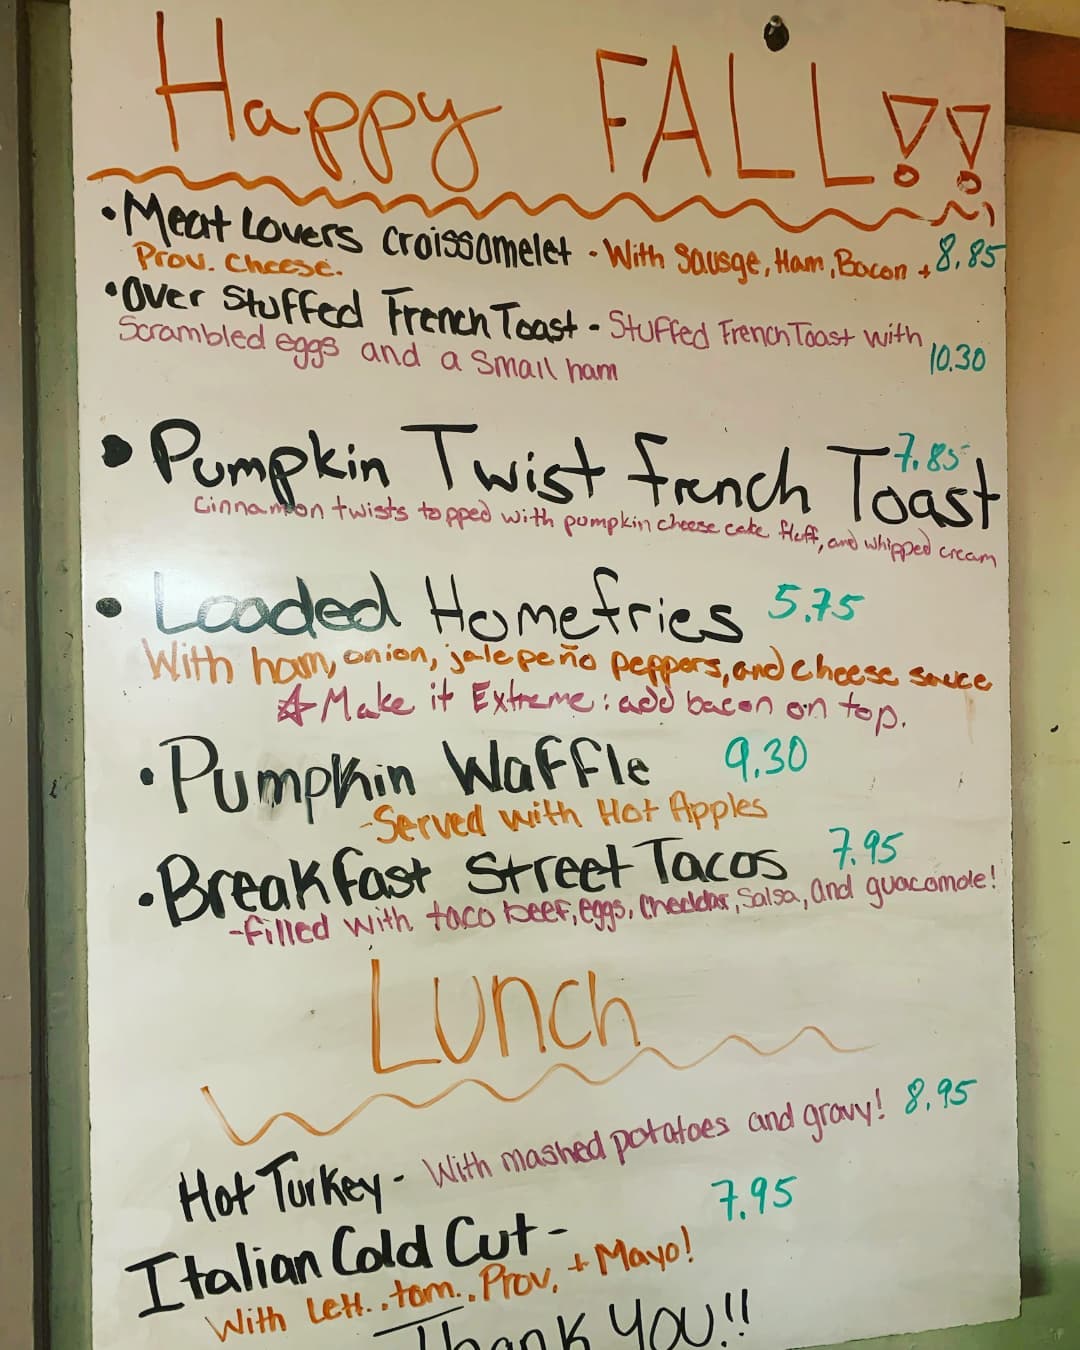 Happy FALL!!
• Meat Lovers Croissomelet - With Sausge, Ham, Bacon + 8.85
Prov. Cheese.
• Over Stuffed French Toast - Stuffed French Toast with
Scrambled eggs and a small ham 10.30
• Pumpkin Twist French Toast 7.85
Cinnamon twists topped with pumpkin cheese cake fluff, and whipped cream
• Loaded Homefries 5.75
With ham, onion, jalepeño peppers, and cheese sauce
☆ Make it Extreme: add bacon on top.
• Pumpkin Waffle 9.30
-Served with Hot Apples
• Breakfast Street Tacos 7.95
-filled with taco beef, eggs, cheddar, Salsa, and guacamole!
Lunch
Hot Turkey - With mashed potatoes and gravy! 8.95
Italian Cold Cut - 7.95
With Lett., tom., Prov. + Mayo!
Thank You!!